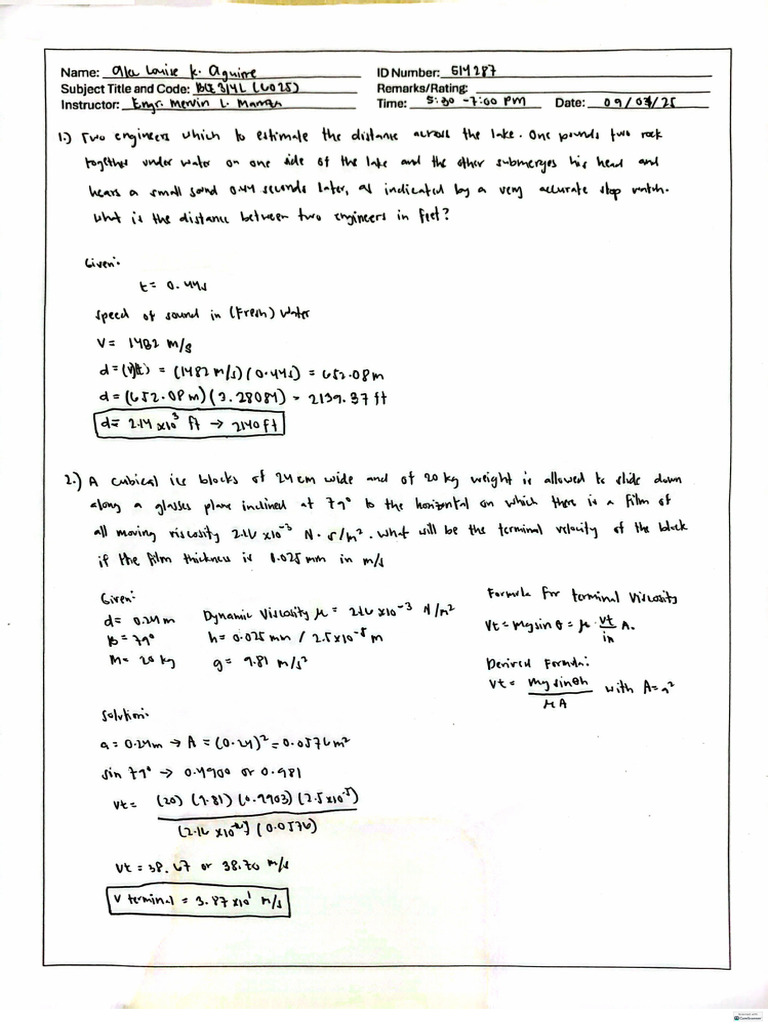 Name: Louise K. Aguirre ID Number: 514287
Subject Title and Code: (6025) Remarks/Rating:
Instructor: Engr. Mervin L. Time: 5:30 -7:00 PM Date: 09/03/25
1.) Two engineers which to estimate the distance across the lake. One pounds two rock
together under water on one side of the lake and the other submerges his head and
hears a small sound 0.44 seconds later, as indicated by a very accurate stop watch.
What is the distance between two engineers in feet?
Given:
t = 0.44s
speed of sound in (Fresh) Water
V = 1482 m/s
d = (v)(t) = (1482 m/s)(0.44s) = 652.08m
d = (652.08m)(3.28084) = 2139.37 ft
d = 2.14 x10³ ft → 2140 ft
2.) A cubical ice blocks of 24 cm wide and of 20 kg weight is allowed to slide down
along a glasses plane inclined at 79° to the horizontal on which there is a film of
all moving viscosity 2.16 x10⁻³ N·s/m². What will be the terminal velocity of the block
if the film thickness is 0.025 mm in m/s
Given:
d = 0.24 m Dynamic Viscosity μ = 2.16 x10⁻³ N/m²
= 79° h = 0.025 mm / 2.5x10⁻⁵ m
M = 20 kg g = 9.81 m/s²
Formula for terminal Viscosity
Vt = mg sin θ = μ · Vt/ A.
Derived Formula:
Vt = mg sinθh / μA with A = a²
Solution:
a = 0.24m → A = (0.24)² = 0.0576m²
sin 79° → 0.4900 or 0.981
Vt = (20) (9.81) (0.9903) (2.5x10⁻⁵) / (2.16 x10) (0.0576)
Vt = 38.67 or 38.70 m/s
V terminal = 3.87 x10¹ m/s
CamScanner